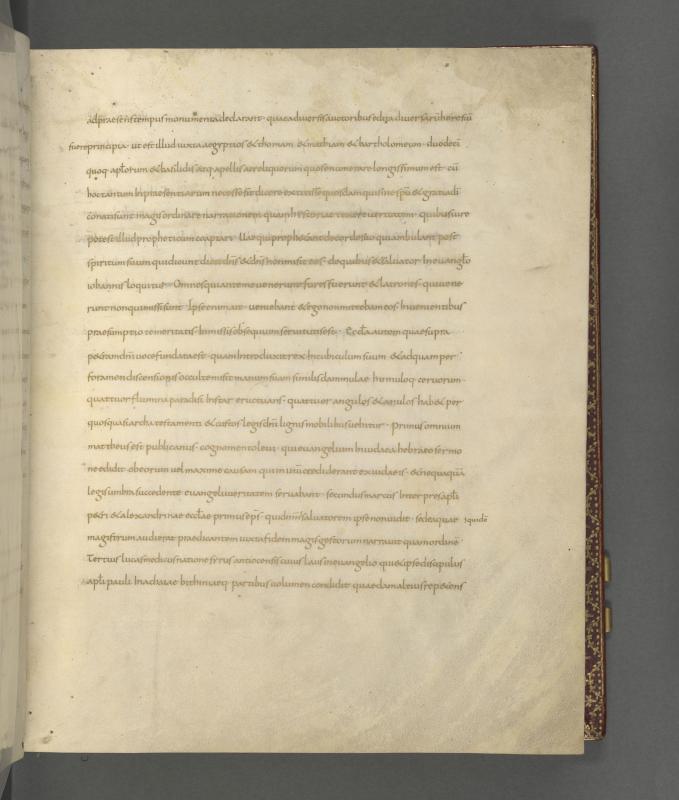 adpraesens tempus monumenta declarant · quae a diversis auctoribus edita diversarum heresiū
fuere principia · ut est illud iuxta aegyptios & thomam · & mathiam & bartholomeum · duodeci
quoq· aplorum & basilidis atq· apellis ac reliquorum quos enumerare longissimum est · cū
hoc tantum in praesentiarum necesse sit dicere extitisse quosdam qui sine spū & gratia di
conati sunt magis ordinare narrationem quam historiae texere veritatem · quibus iure
potest illud propheticum coaptari · Uae qui proph&ant de corde suo qui ambulant post
spiritum suum qui dicunt dicit dns & dns non misit eos · de quibus & salvator in evanglo
iohannis loquitur · Omnes qui ante me venerunt fures fuerunt & latrones · qui vene
runt non qui missi sunt · Ipse enim ait · veniebant & ego non mittebam eos · In venientibus
praesumptio temeritatis · In missis obsequium servitutis est · Eccla autem quae supra
p&ram dni voce fundata est · quam introduxit rex in cubiculum suum · & ad quam per
foramen discensionis occultae misit manum suam similis dammulae hinnuloq· cervorum ·
quattuor flumina paradisi instar eructuans · quattuor angulos & anulos hab& per
quos quasi archa testamenti & custos legis dni lignis mobilibus vehitur · Primus omnium
mattheus est publicanus · cognomento levi · qui evangelium in iudaea hebraeo sermo
ne edidit · ob eorum vel maxime causam qui in ihm crediderant ex iudaeis · & nequaquā
legis umbra succedente evangelii veritatem servabant · Secundus marcus · Interpres apli
p&ri & alexandrinae ecclae primus eps · qui dnm salvatorem ipse non vidit · sed ea quae
quidē
magistrum audierat praedicantem iuxta fidem magis gestorum narravit quam ordinē
Tertius lucas medicus natione syrus antiocensis cuius laus in evangelio qui & ipse discipulus
apli pauli · In achaiae bithiniaeq· partibus volumen condidit quaedam altius rep&ens